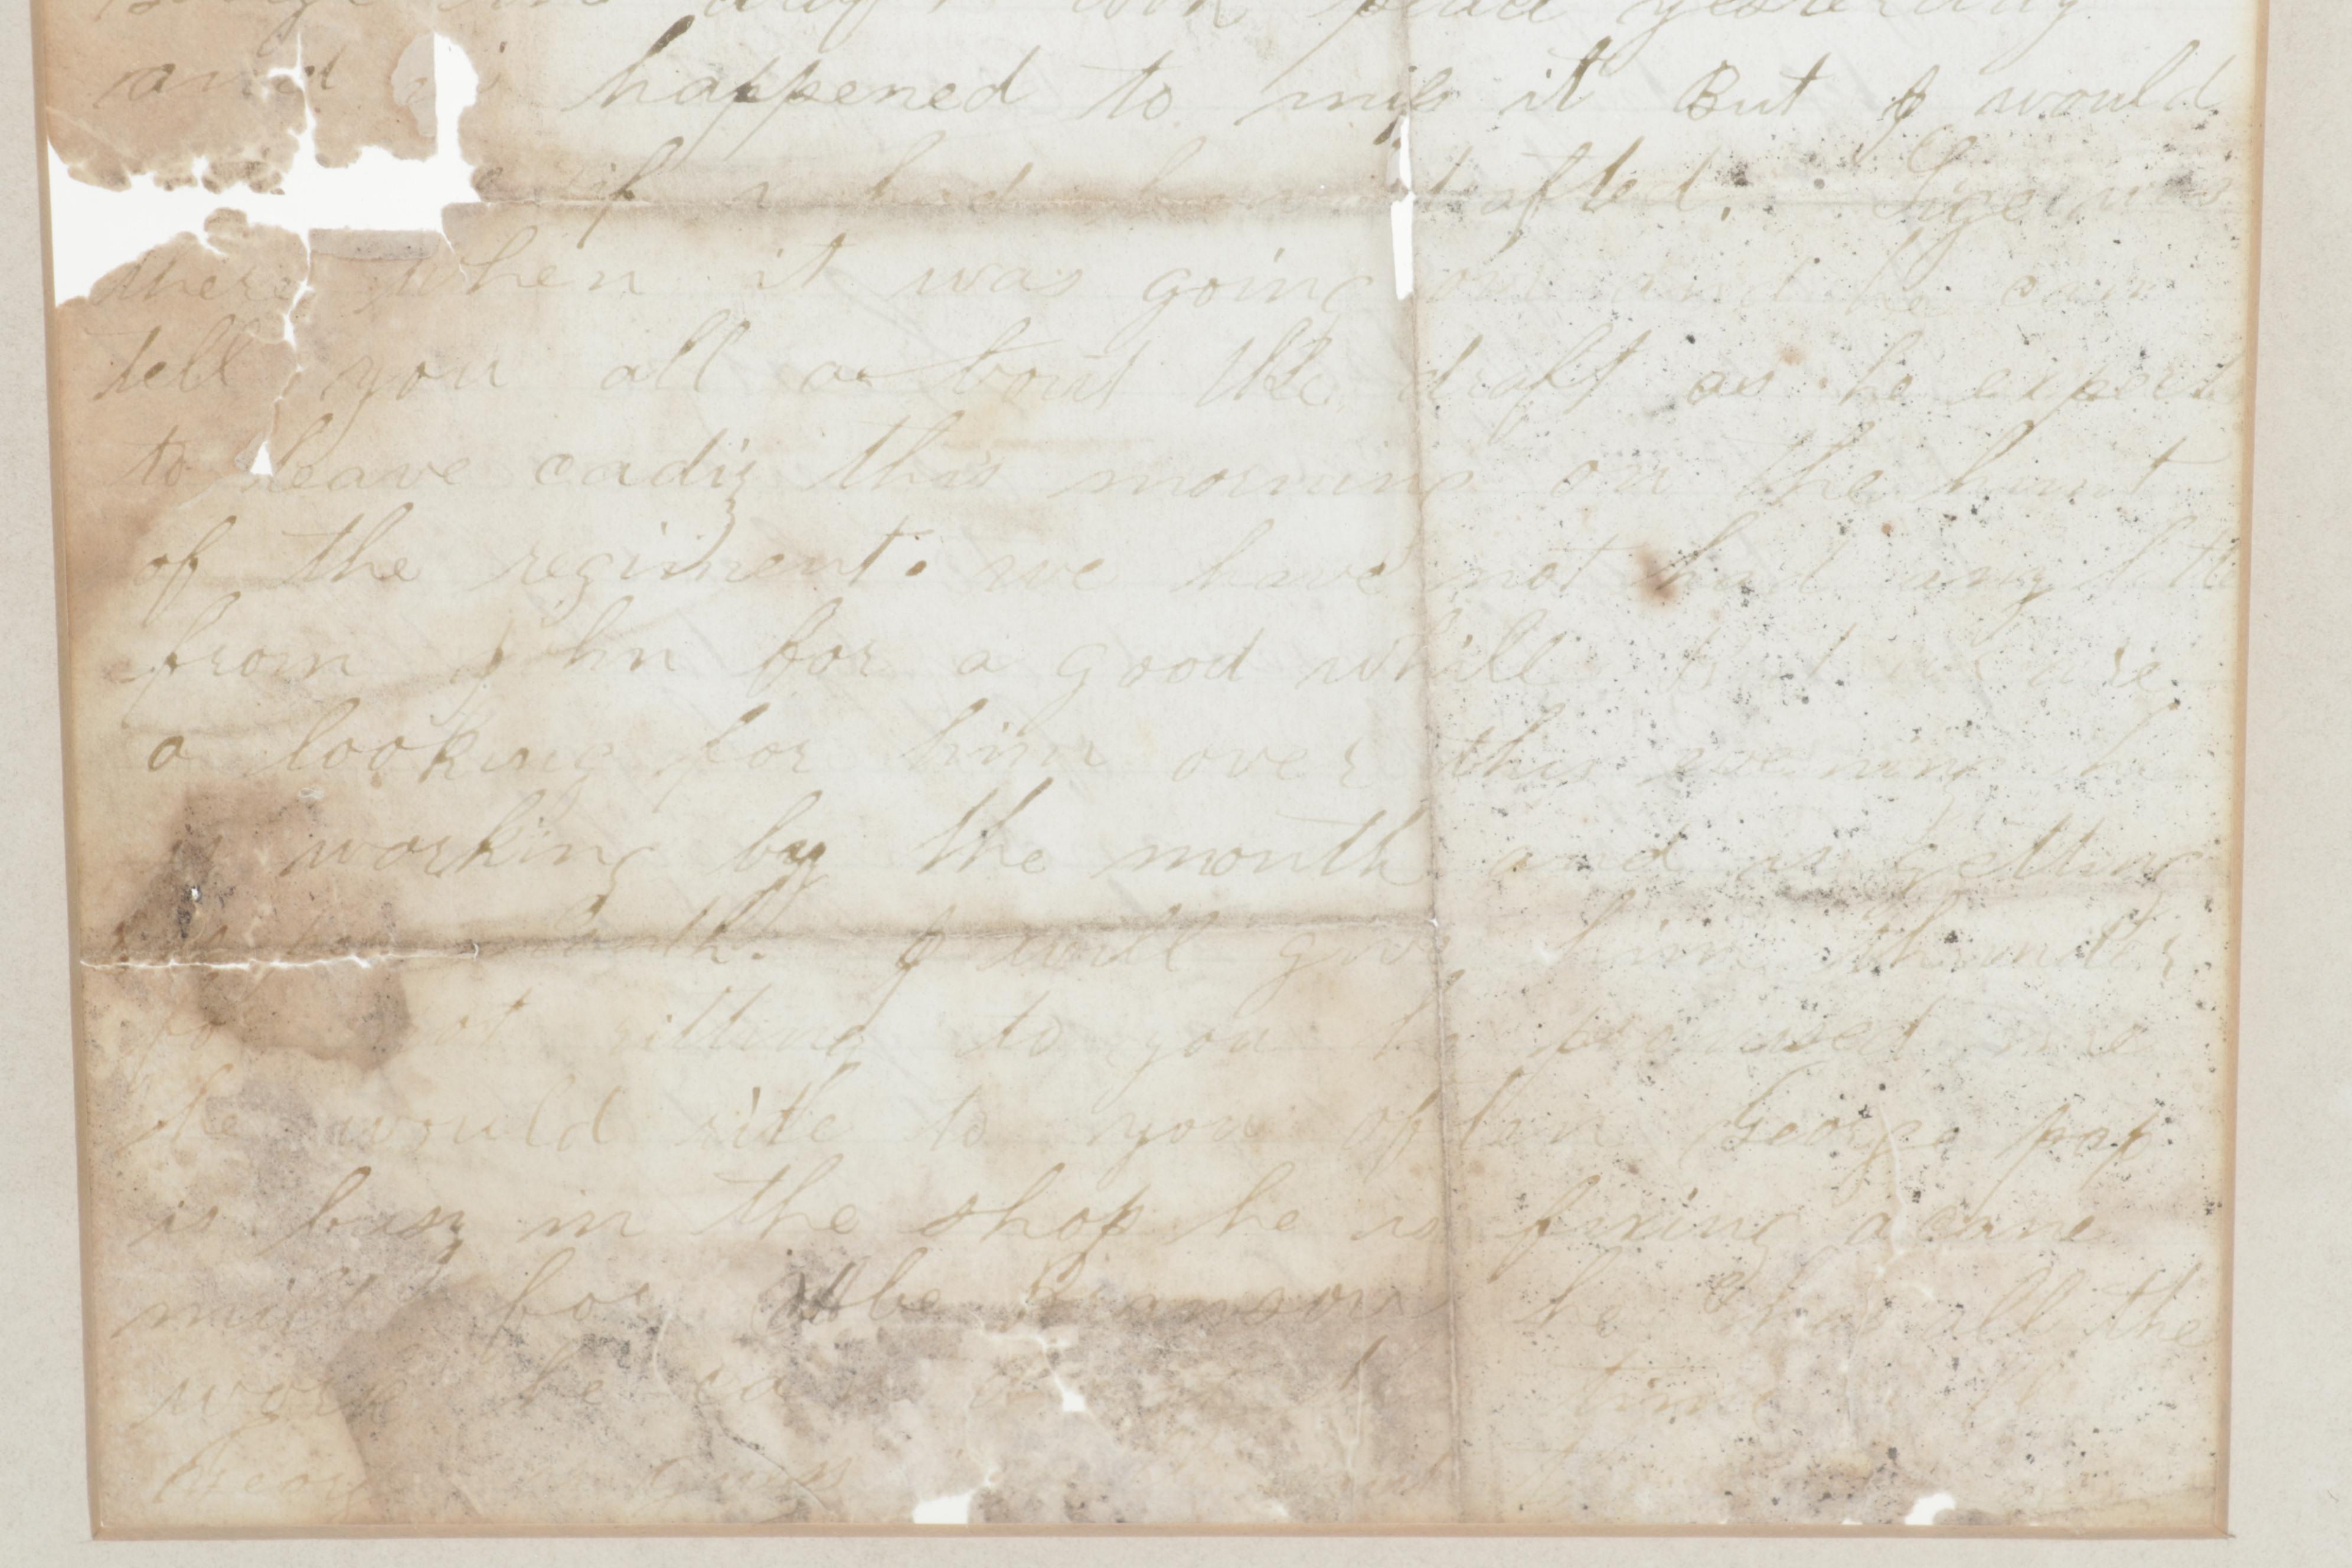 took place yesterday
and happened to miss it But I would
if drafted.
there when it was going on and he can
tell you all a bout the draft as he expects
to leave cadiz this morning on the hunt
of the regiment. we have not had any
from John for a good while But we are
a looking for him over this evening he
is working by the month and is getting
month. I will give him thunder
for not ritting to you he promised me
he would rite to you often George pap
is busy in the shop he is fixing a cane
mill for Abe he has all the
work he time